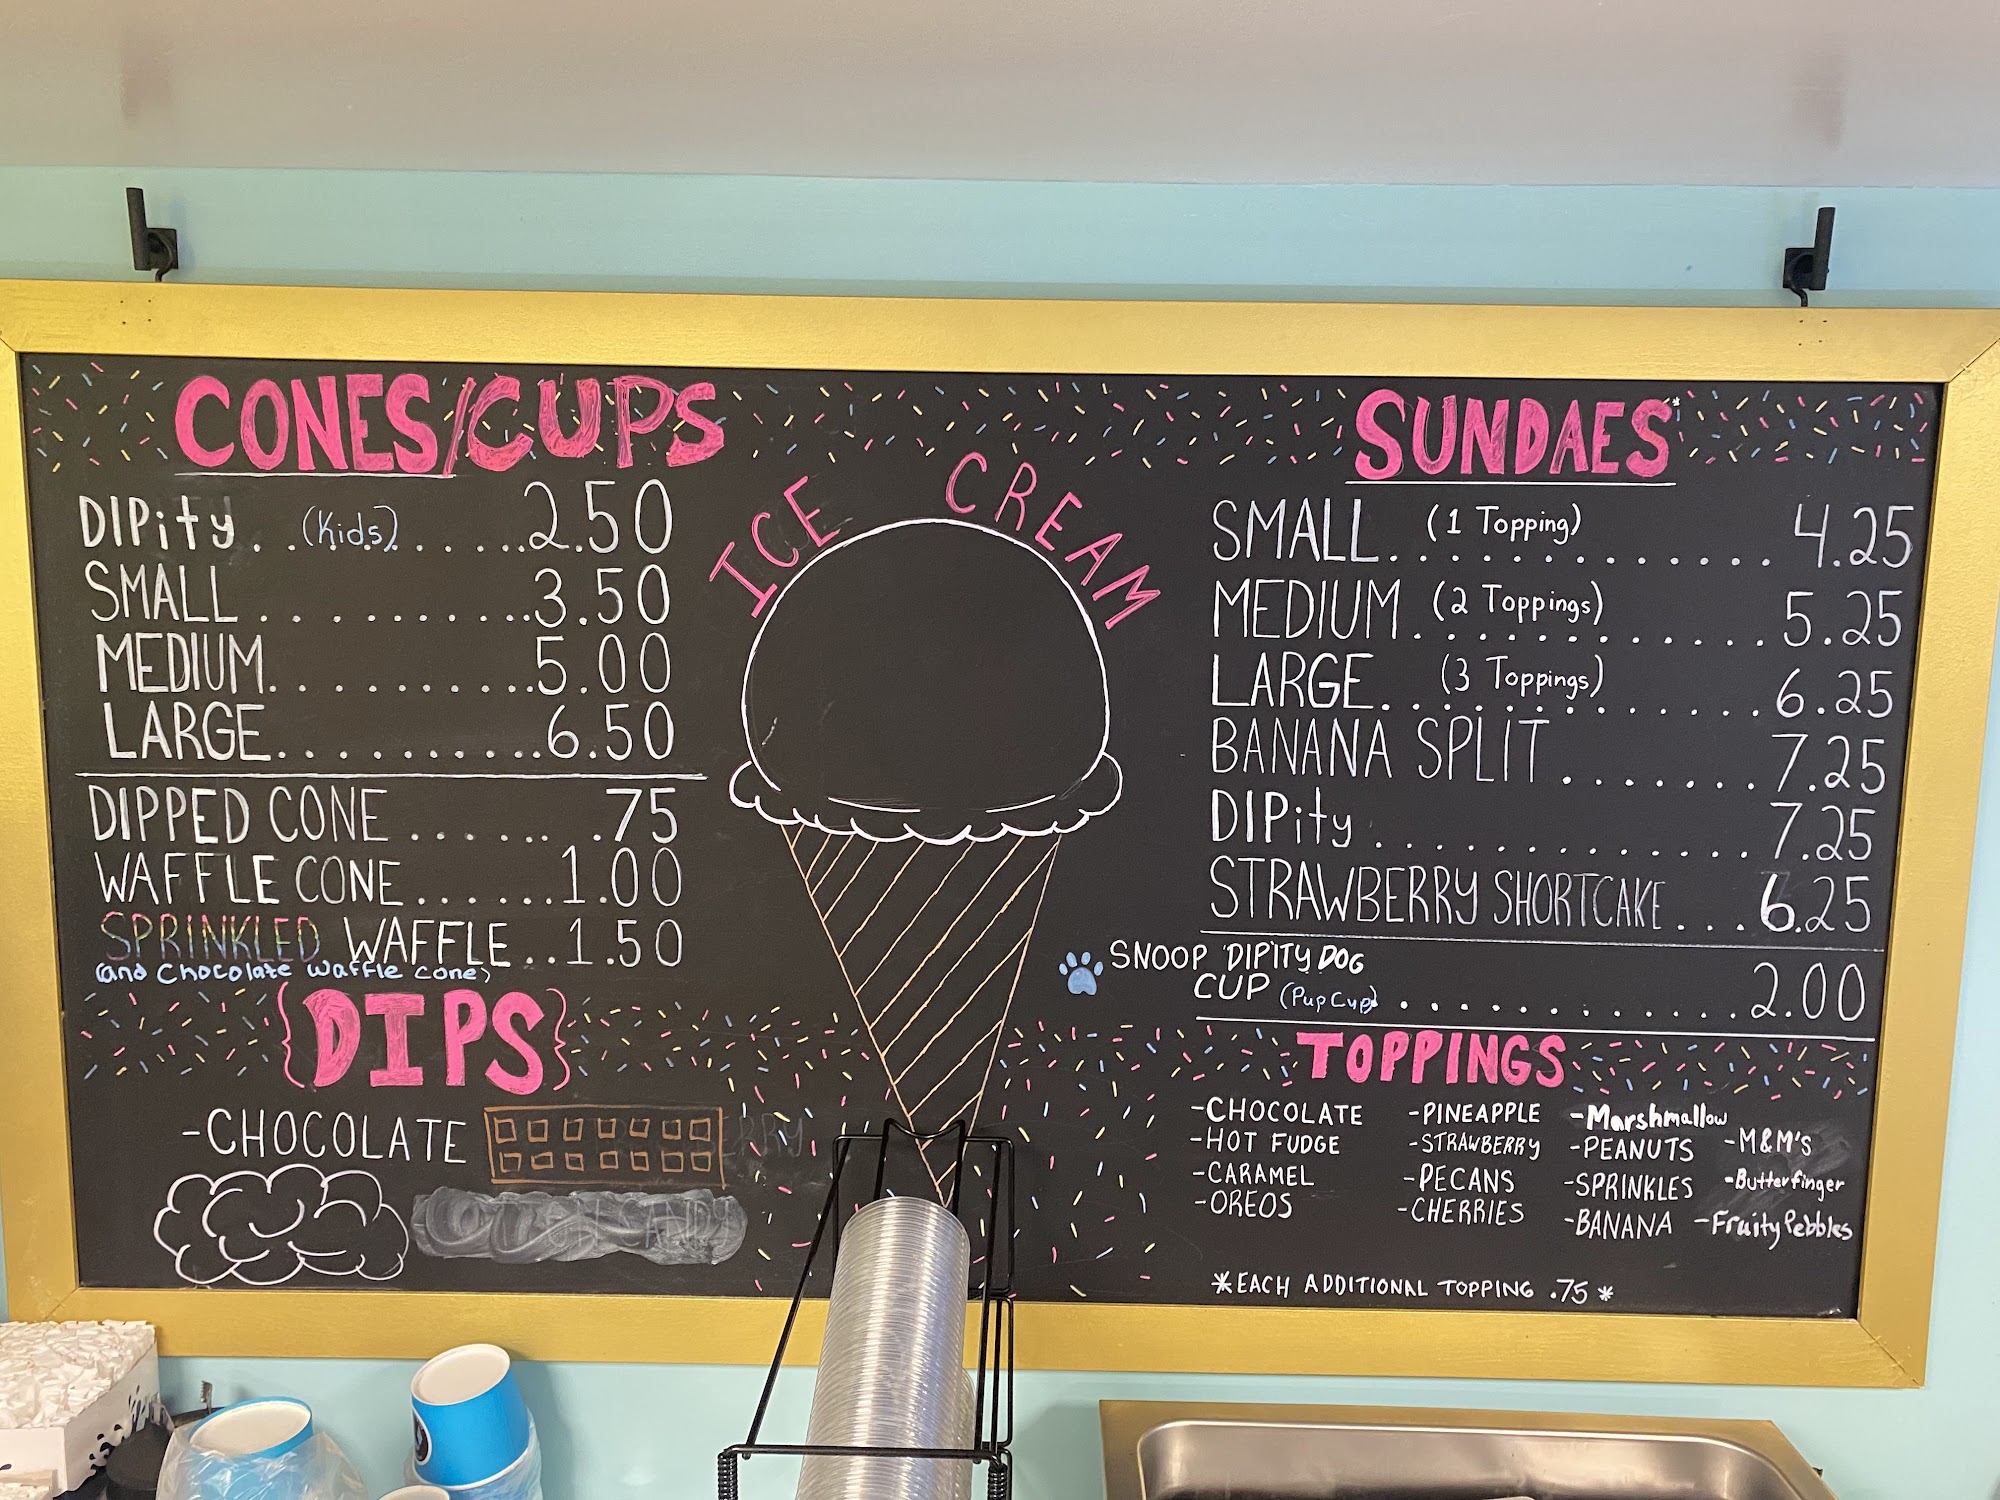 CONES/CUPS
DIPity (Kids) 2.50
SMALL 3.50
MEDIUM 5.00
LARGE 6.50
DIPPED CONE .75
WAFFLE CONE 1.00
SPRINKLED WAFFLE 1.50
(and Chocolate waffle cone)
{DIPS}
-CHOCOLATE
ICE CREAM
SUNDAES*
SMALL (1 Topping) 4.25
MEDIUM (2 Toppings) 5.25
LARGE (3 Toppings) 6.25
BANANA SPLIT 7.25
DIPity 7.25
STRAWBERRY SHORTCAKE 6.25
SNOOP DIPITY DOG
CUP (Pup Cup) 2.00
TOPPINGS
-CHOCOLATE
-HOT FUDGE
-CARAMEL
-OREOS
-PINEAPPLE
-STRAWBERRY
-PECANS
-CHERRIES
-Marshmallow
-PEANUTS
-SPRINKLES
-BANANA
-M&M'S
-Butterfinger
-Fruity Pebbles
*EACH ADDITIONAL TOPPING .75*